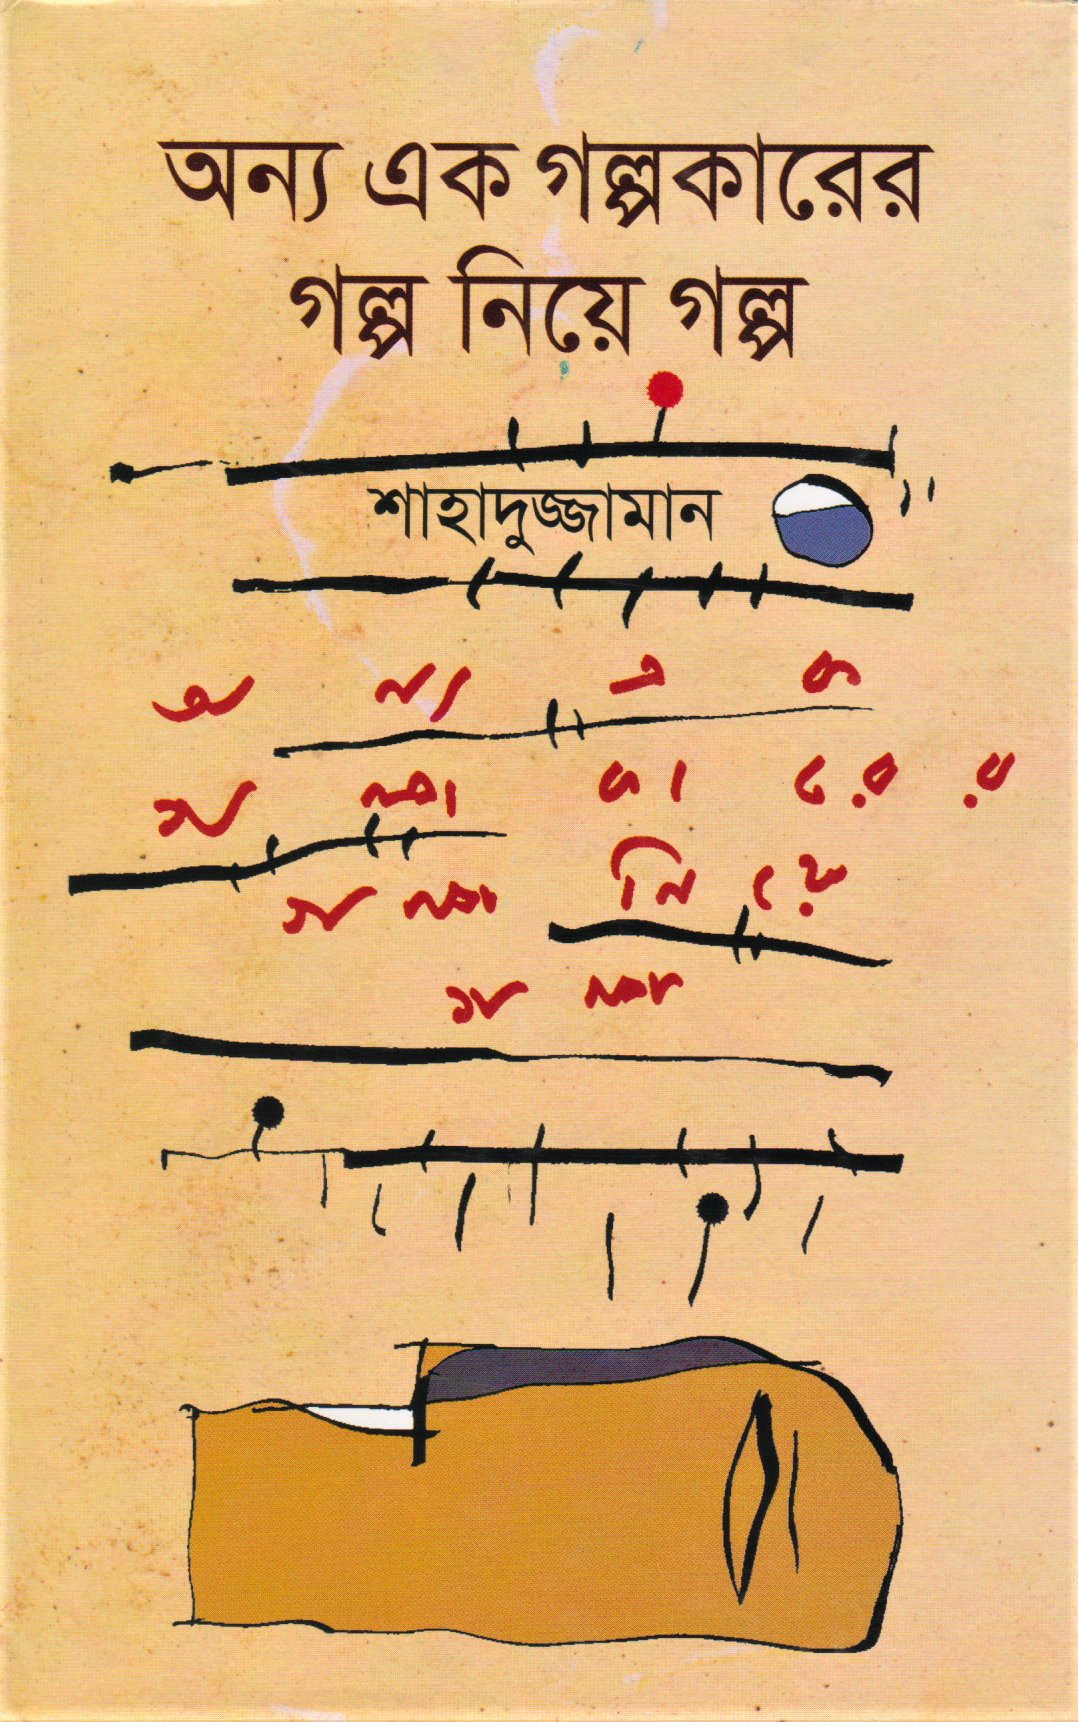 অন্য এক গল্পকারের
গল্প নিয়ে গল্প
শাহাদুজ্জামান
অ ন্য এ ক
গ ল্প কা রে র
গ ল্প নি য়ে
গ ল্প